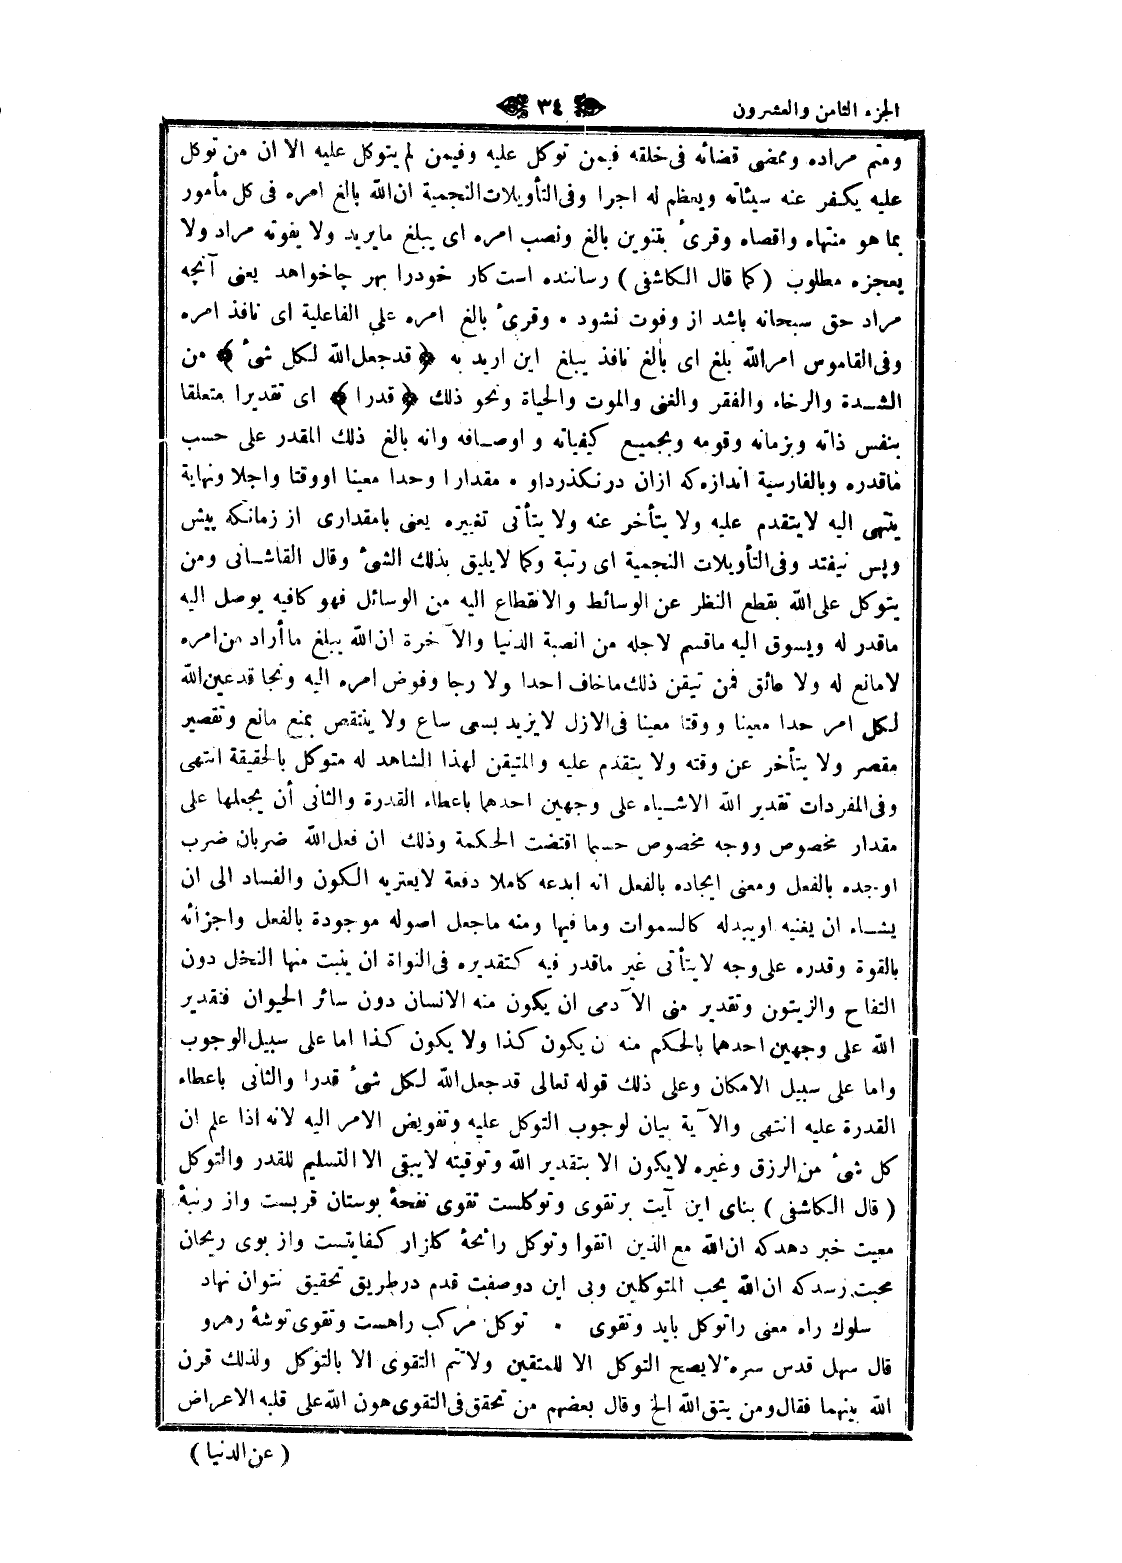 الجزء الثامن والعشرون
٣٤
ومتم مراده وممضى قضائه فى خلقه فيمن توكل عليه وفيمن لم يتوكل عليه الا ان من توكل
عليه يكفر عنه سيئاته ويعظم له اجرا وفى التأويلات النجمية ان الله بالغ امره فى كل مأمور
بما هو منتهاه واقصاه وقرئ بتنوين بالغ ونصب امره اى يبلغ مايريد ولا يفوته مراد ولا
يعجزه مطلوب (كما قال الكاشفى) رساننده است كار خودرا بهر چاخواهد يعنى آنچه
مراد حق سبحانه باشد از وفوت نشود • وقرئ بالغ امره على الفاعلية اى نافذ امره
وفى القاموس امرالله بلغ اى بالغ نافذ يبلغ اين اريد به ﴿ قدجعل الله لكل شئ ﴾ من
الشدة والرخاء والفقر والغنى والموت والحياة ونحو ذلك ﴿ قدرا ﴾ اى تقديرا متعلقا
بنفس ذاته وبزمانه وقومه وبجميع كيفياته و اوصافه وانه بالغ ذلك المقدر على حسب
ماقدره وبالفارسية اندازه كه ازان درنكذرداو • مقدارا وحدا معينا اووقتا واجلا ونهاية
ينتهى اليه لايتقدم عليه ولا يتأخر عنه ولا يتأتى تغييره يعنى بامقدارى از زمانكه پيش
وپس نيفتد وفى التأويلات النجمية اى رتبة وكما لايليق بذلك الشئ وقال القاشانى ومن
يتوكل على الله بقطع النظر عن الوسائط والانقطاع اليه من الوسائل فهو كافيه يوصل اليه
ماقدر له ويسوق اليه ماقسم لاجله من انصبة الدنيا والآخرة ان الله يبلغ ماأراد من امره
لامانع له ولا عائق فمن تيقن ذلك ماخاف احدا ولا رجا وفوض امره اليه ونجا قدعين الله
لكل امر حدا معينا و وقتا معينا فى الازل لايزيد بسعى ساع ولا ينتقص بمنع مانع وتقصير
مقصر ولا يتأخر عن وقته ولا يتقدم عليه والمتيقن لهذا الشاهد له متوكل بالحقيقة انتهى
وفى المفردات تقدير الله الاشياء على وجهين احدهما باعطاء القدرة والثانى أن يجعلها على
مقدار مخصوص ووجه مخصوص حسبما اقتضت الحكمة وذلك ان فعل الله ضربان ضرب
اوجده بالفعل ومعنى ايجاده بالفعل انه ابدعه كاملا دفعة لايعتريه الكون والفساد الى ان
يشاء ان يفنيه اويبدله كالسموات وما فيها ومنه ماجعل اصوله موجودة بالفعل واجزائه
بالقوة وقدره على وجه لايتأتى غير ماقدر فيه كتقديره فى النواة ان ينبت منها النخل دون
التفاح والزيتون وتقدير منى الآدمى ان يكون منه الانسان دون سائر الحيوان فتقدير
الله على وجهين احدهما بالحكم منه ن يكون كذا ولا يكون كذا اما على سبيل الوجوب
واما على سبيل الامكان وعلى ذلك قوله تعالى قدجعل الله لكل شئ قدرا والثانى باعطاء
القدرة عليه انتهى والآية بيان لوجوب التوكل عليه وتفويض الامر اليه لانه اذا علم ان
كل شئ من الرزق وغيره لايكون الا بتقدير الله وتوقيته لايبقى الا التسليم للقدر والتوكل
(قال الكاشفى) بناى اين آيت برتقوى وتوكلست تقوى نفحۀ بوستان قربست واز رتبۀ
معيت خبر دهدكه ان الله مع الذين اتقوا وتوكل رائحۀ كلزار كفايتست واز بوى ريحان
محبت رسدكه ان الله يحب المتوكلين وبى اين دوصفت قدم درطريق تحقيق نتوان نهاد
سلوك راه معنى راتوكل بايد وتقوى • توكل مركب راهست وتقوى توشۀ رهرو
قال سهل قدس سره لايصح التوكل الا للمتقين ولاتتم التقوى الا بالتوكل ولذلك قرن
الله بينهما فقال ومن يتق الله الخ وقال بعضهم من تحقق فى التقوى هون الله على قلبه الاعراض
(عن الدنيا)